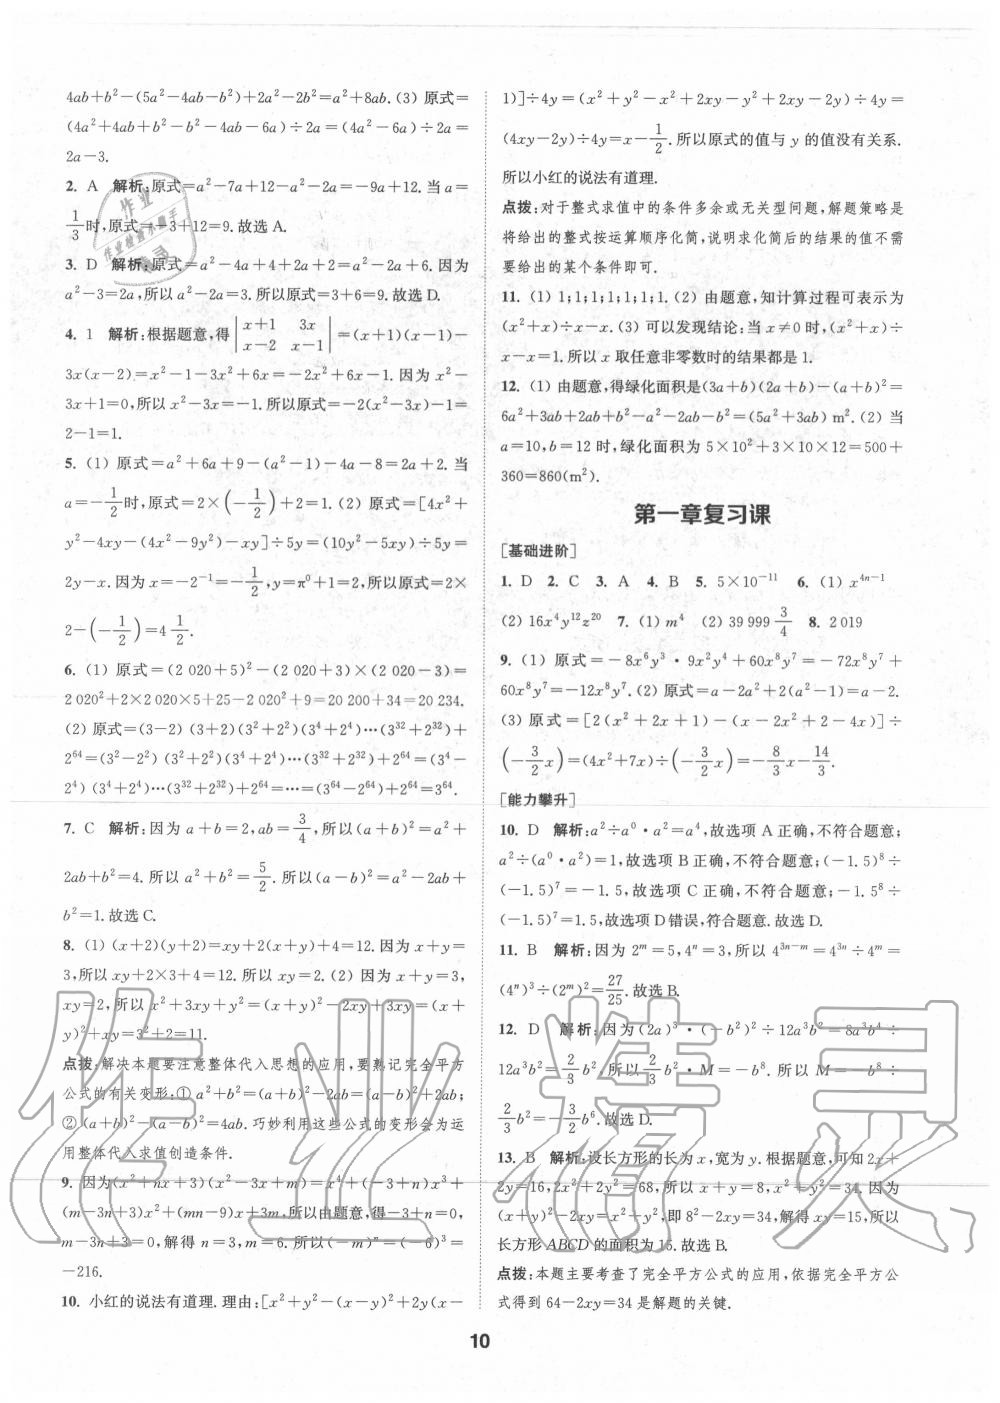 4ab+b²-(5a²-4ab-b²)+2a²-2b²=a²+8ab.(3) 原式=
(4a²+4ab+b²-b²-4ab-6a)÷2a=(4a²-6a)÷2a=
2a-3.
2. A 解析:原式=a²-7a+12-a²-2a=-9a+12. 当 a=
1/3时,原式=-3+12=9.故选 A.
3. D 解析:原式=a²-4a+4+2a+2=a²-2a+6.因为
a²-3=2a,所以 a²-2a=3.所以原式=3+6=9.故选 D.
4. 1 解析:根据题意,得 |x+1 3x; x-2 x-1| =(x+1)(x-1)-
3x(x-2)=x²-1-3x²+6x=-2x²+6x-1.因为 x²-
3x+1=0,所以 x²-3x=-1.所以原式=-2(x²-3x)-1=
2-1=1.
5. (1) 原式=a²+6a+9-(a²-1)-4a-8=2a+2. 当
a=-1/2时,原式=2×(-1/2)+2=1.(2) 原式=[4x²+
y²-4xy-(4x²-9y²)-xy]÷5y=(10y²-5xy)÷5y=
2y-x.因为 x=-2⁻¹=-1/2,y=π⁰+1=2,所以原式=2×
2-(-1/2)=4 1/2.
6. (1) 原式=(2 020+5)²-(2 020+3)×(2 020-3)=
2 020²+2×2 020×5+25-2 020²+9=20 200+34=20 234.
(2) 原式=(3-2)(3+2)(3²+2²)(3⁴+2⁴)…(3³²+2³²)+
2⁶⁴=(3²-2²)(3²+2²)(3⁴+2⁴)…(3³²+2³²)+2⁶⁴=(3⁴-
2⁴)(3⁴+2⁴)…(3³²+2³²)+2⁶⁴=…=(3⁶⁴-2⁶⁴)+2⁶⁴=3⁶⁴.
7. C 解析:因为 a+b=2,ab=3/4,所以(a+b)²=a²+
2ab+b²=4.所以 a²+b²=5/2.所以(a-b)²=a²-2ab+
b²=1.故选 C.
8. (1) (x+2)(y+2)=xy+2(x+y)+4=12. 因为 x+y=
3,所以 xy+2×3+4=12.所以 xy=2.(2) 因为 x+y=3,
xy=2,所以 x²+3xy+y²=(x+y)²-2xy+3xy=(x+
y)²+xy=3²+2=11.
点拨:解决本题要注意整体代入思想的应用,要熟记完全平方
公式的有关变形:① a²+b²=(a+b)²-2ab=(a-b)²+2ab;
② (a+b)²-(a-b)²=4ab. 巧妙利用这些公式的变形会为运
用整体代入求值创造条件.
9. 因为(x²+nx+3)(x²-3x+m)=x⁴+(-3+n)x³+
(m-3n+3)x²+(mn-9)x+3m,所以由题意,得-3+n=0,
m-3n+3=0,解得 n=3,m=6.所以(-m)ⁿ=(-6)³=
-216.
10. 小红的说法有道理.理由:[x²+y²-(x-y)²+2y(x-
1)]÷4y=(x²+y²-x²+2xy-y²+2xy-2y)÷4y=
(4xy-2y)÷4y=x-1/2.所以原式的值与 y 的值没有关系.
所以小红的说法有道理.
点拨:对于整式求值中的条件多余或无关型问题,解题策略是
将给出的整式按运算顺序化简,说明求化简后的结果的值不需
要给出的某个条件即可.
11. (1) 1;1;1;1;1;1.(2) 由题意,知计算过程可表示为
(x²+x)÷x-x.(3) 可以发现结论:当 x≠0 时,(x²+x)÷
x-x=1.所以 x 取任意非零数时的结果都是 1.
12. (1) 由题意,得绿化面积是(3a+b)(2a+b)-(a+b)²=
6a²+3ab+2ab+b²-a²-2ab-b²=(5a²+3ab) m².(2) 当
a=10,b=12 时,绿化面积为 5×10²+3×10×12=500+
360=860(m²).
第一章复习课
[基础进阶]
1. D 2. C 3. A 4. B 5. 5×10⁻¹¹ 6. (1) x⁴ⁿ⁻¹
(2) 16x⁴y¹²z²⁰ 7. (1) m⁴ (2) 39 999 3/4 8. 2 019
9. (1) 原式=-8x⁶y³·9x²y⁴+60x⁸y⁷=-72x⁸y⁷+
60x⁸y⁷=-12x⁸y⁷.(2) 原式=a-2a²+2(a²-1)=a-2.
(3) 原式=[2(x²+2x+1)-(x-2x²+2-4x)]÷
(-3/2x)=(4x²+7x)÷(-3/2x)=-8/3x-14/3.
[能力攀升]
10. D 解析:a²÷a⁰·a²=a⁴,故选项 A 正确,不符合题意;
a²÷(a⁰·a²)=1,故选项 B 正确,不符合题意;(-1.5)⁸÷
(-1.5)⁷=-1.5,故选项 C 正确,不符合题意;-1.5⁸÷
(-1.5)⁷=1.5,故选项 D 错误,符合题意.故选 D.
11. B 解析:因为 2ᵐ=5,4ⁿ=3,所以 4³ⁿ⁻ᵐ=4³ⁿ÷4ᵐ=
(4ⁿ)³÷(2ᵐ)²=27/25.故选 B.
12. D 解析:因为(2a)³·(-b²)²÷12a³b²=8a³b⁴÷
12a³b²=2/3b²,所以2/3b²·M=-b⁸.所以 M=-b⁸÷
2/3b²=-3/2b⁶.故选 D.
13. B 解析:设长方形的长为 x,宽为 y.根据题意,可知 2x+
2y=16,2x²+2y²=68,所以 x+y=8,x²+y²=34.因为
(x+y)²-2xy=x²+y²,即 8²-2xy=34,解得 xy=15,所以
长方形 ABCD 的面积为 15.故选 B.
点拨:本题主要考查了完全平方公式的应用,依据完全平方公
式得到 64-2xy=34 是解题的关键.
10
作业精灵